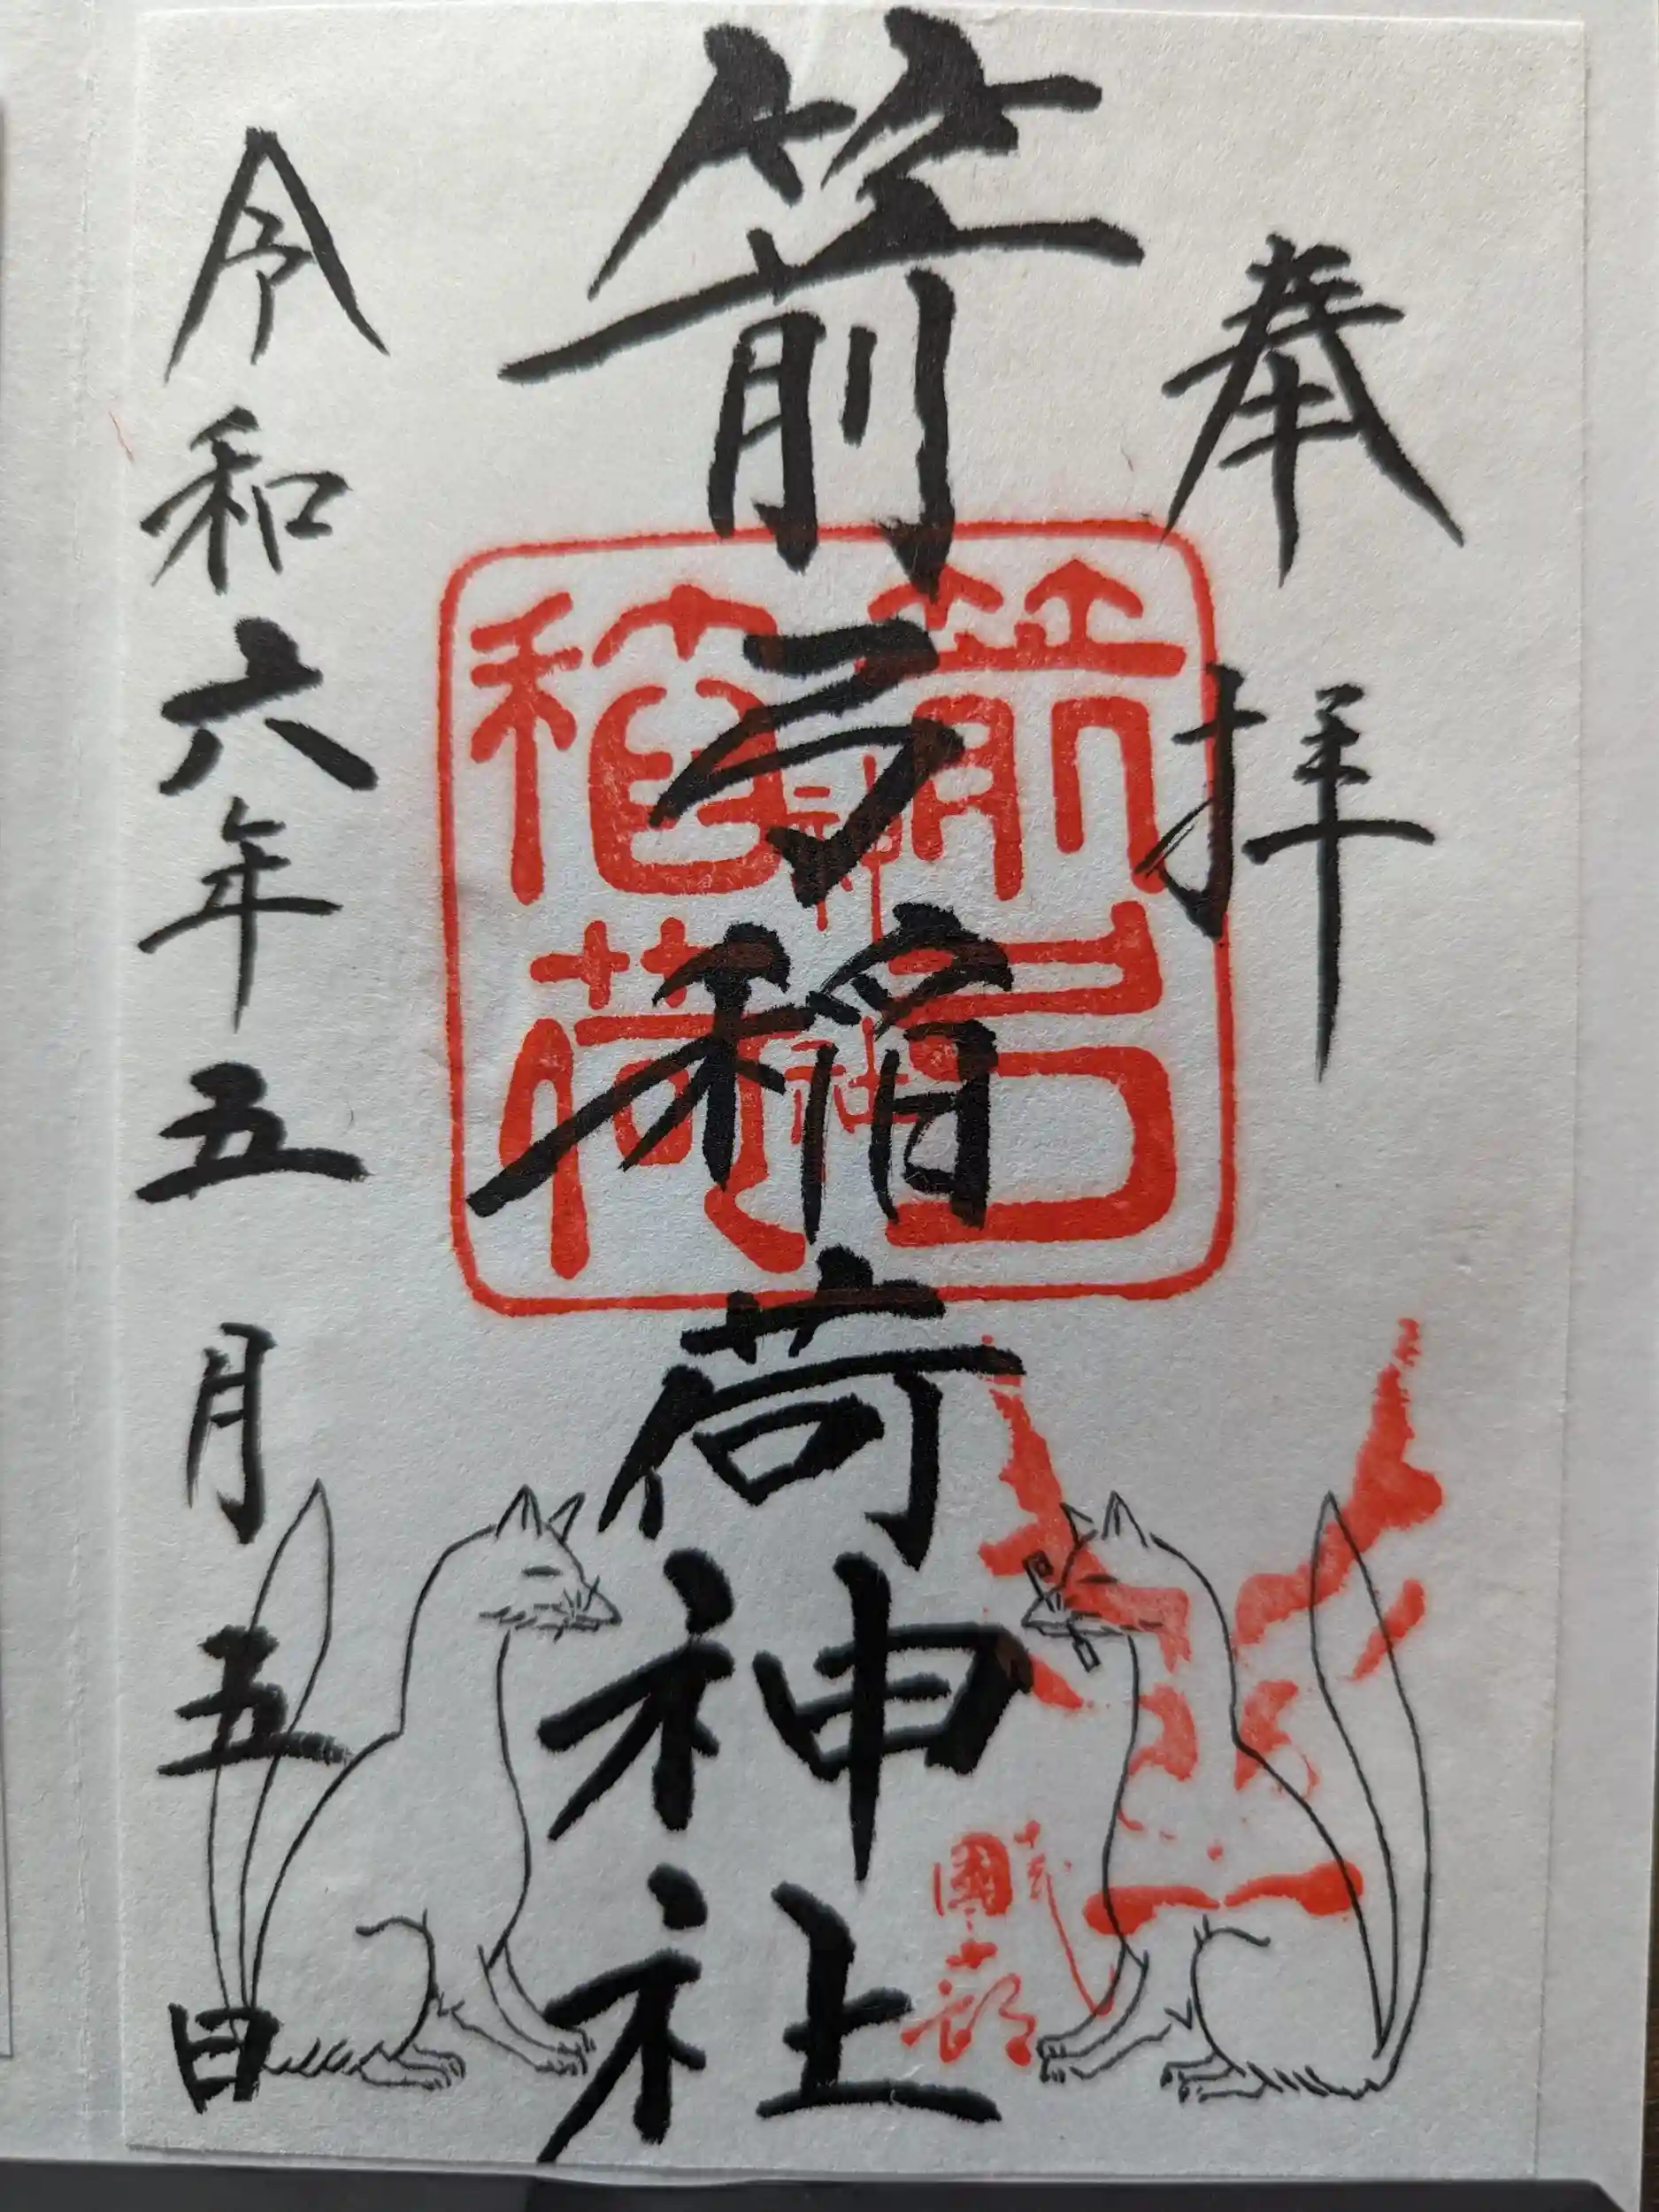 奉拝
箭弓稲荷神社
箭弓
稲荷
神社
令和六年五月五日